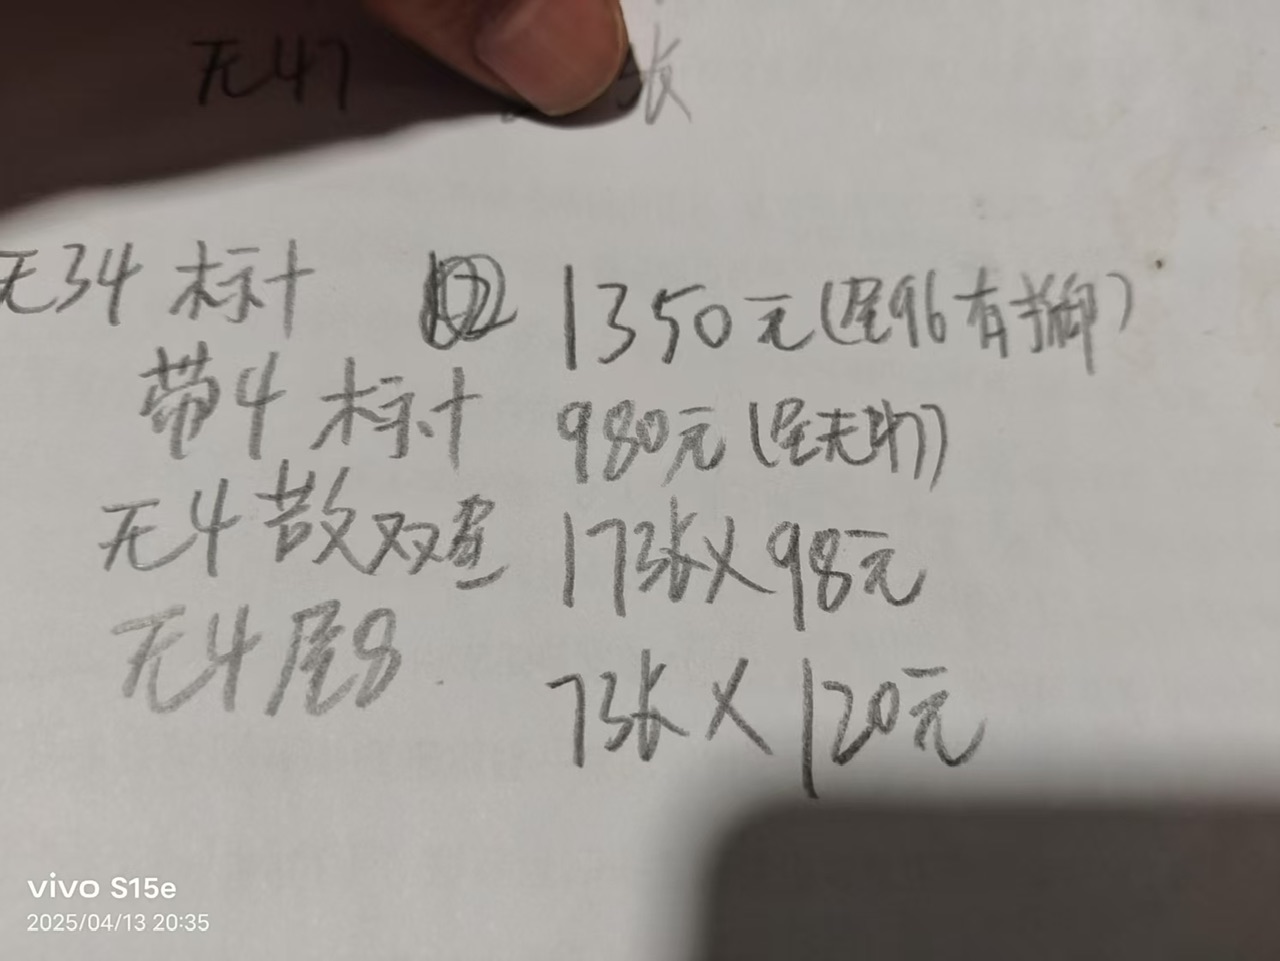 无47 张
无34 标十 1350元(尾96有拂)
带4 标十 980元(尾无47)
无4散双尾 17张×98元
无4尾8
7张×120元
vivo S15e
2025/04/13 20:35